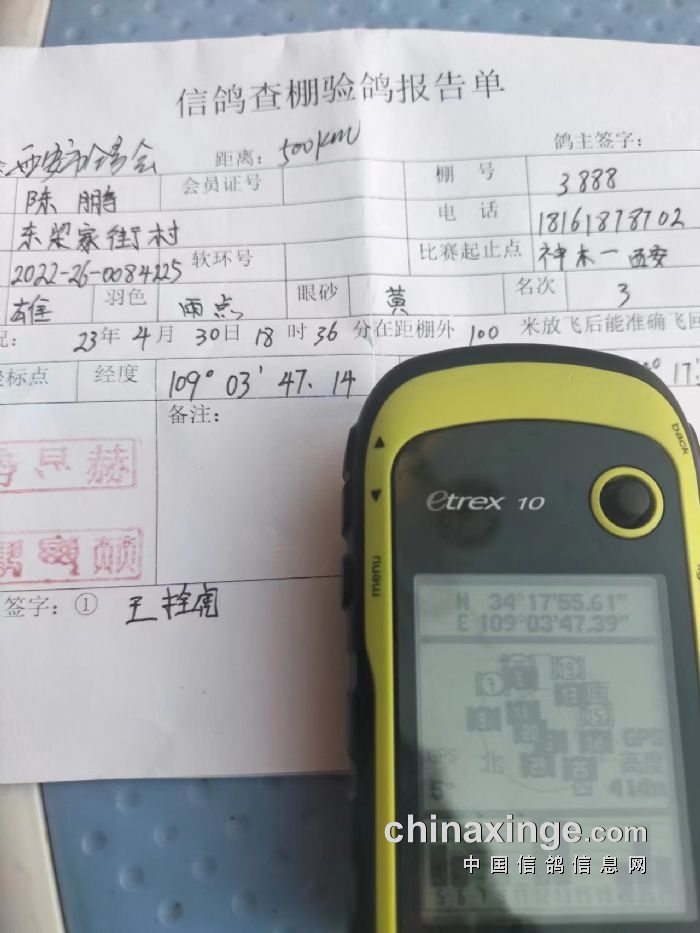 信鸽查棚验鸽报告单
西安市 距离: 500KM 鸽主签字:
陈鹏 会员证号 棚号 3888
东梁家街村 电话 18161878702
2022-26-0084225 软环号 比赛起止点 神木一西安
雄 羽色 雨点 眼砂 黄 名次 3
况: 23年4月30日18时36分在距棚外100米放飞后能准确飞回
坐标点 经度 109° 03' 47.14 ° 17'
备注:
签字: ① 王拴虎
back
etrex 10
menu
N 34°17'55.61"
E 109°03'47.39"
南
GPS
GPS 北 高度
5 西 414m
chinaxinge.com
中国信鸽信息网